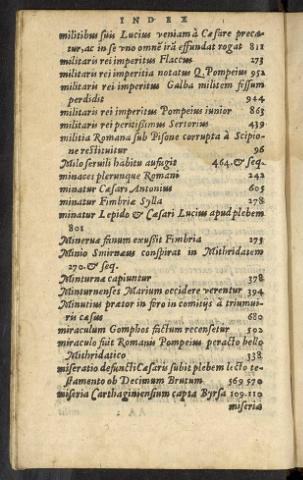 INDEX
militibus suis Lucius veniam à Cæsare preca
tur, ac in se vno omnẽ irã effundat rogat 811
militaris rei imperitus Flaccus 273
militaris rei imperitia notatus Q. Pompeius 952
militaris rei imperitus Galba militem fessum
perdidit 944
militaris rei imperitus Pompeius iunior 863
militaris rei peritissimus Sertorius 439
militia Romana sub Pisone corrupta à Scipio-
ne restituitur 96
Milo servili habitu aufugit 464. & seq.
minaces plerunque Romani 242
minatur Cæsari Antonius 605
minatur Fimbriæ Sylla 278
minatur Lepido & Cæsari Lucius apud plebem
801
Minervæ fanum exussit Fimbria 275
Minio Smirnæus conspirat in Mithridatem
270. & seq.
Minturnæ capiuntur 378
Minturnenses Marium occidere verentur 394
Minutius prætor in foro in comitijs à triumui-
ris cæsus 680
miraculum Gomphos factum recensetur 502
miraculo fuit Romanis Pompeius peracto bello
Mithridatico 338
miseratio defuncti Cæsaris subit plebem lecto te-
stamento ob Decimum Brutum 569 570
miseria Carthaginiensium capta Byrsa 109. 110
miseria